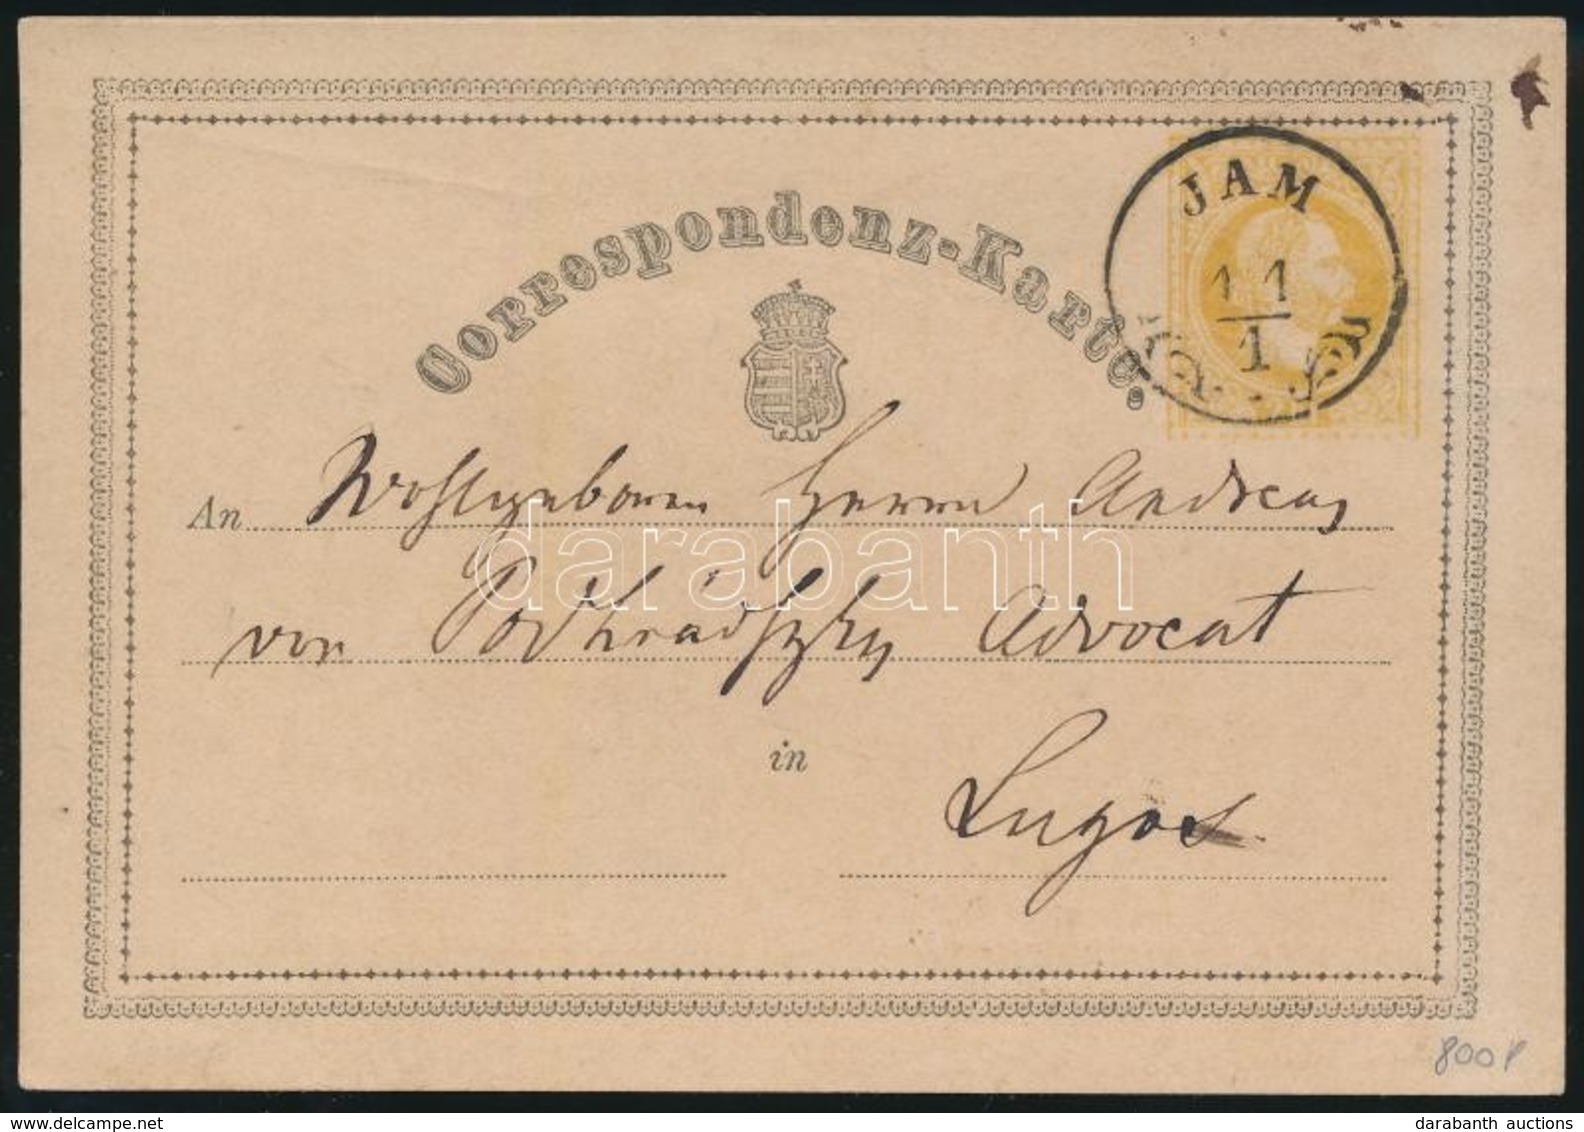 Correspondenz-Karte.
JAM
11
1
An Wohlgeboren Herrn Andreas
von Podhrádszky Advocat
in Lugos
darabanth
800 P
www.delcampe.net
darabanth auctions